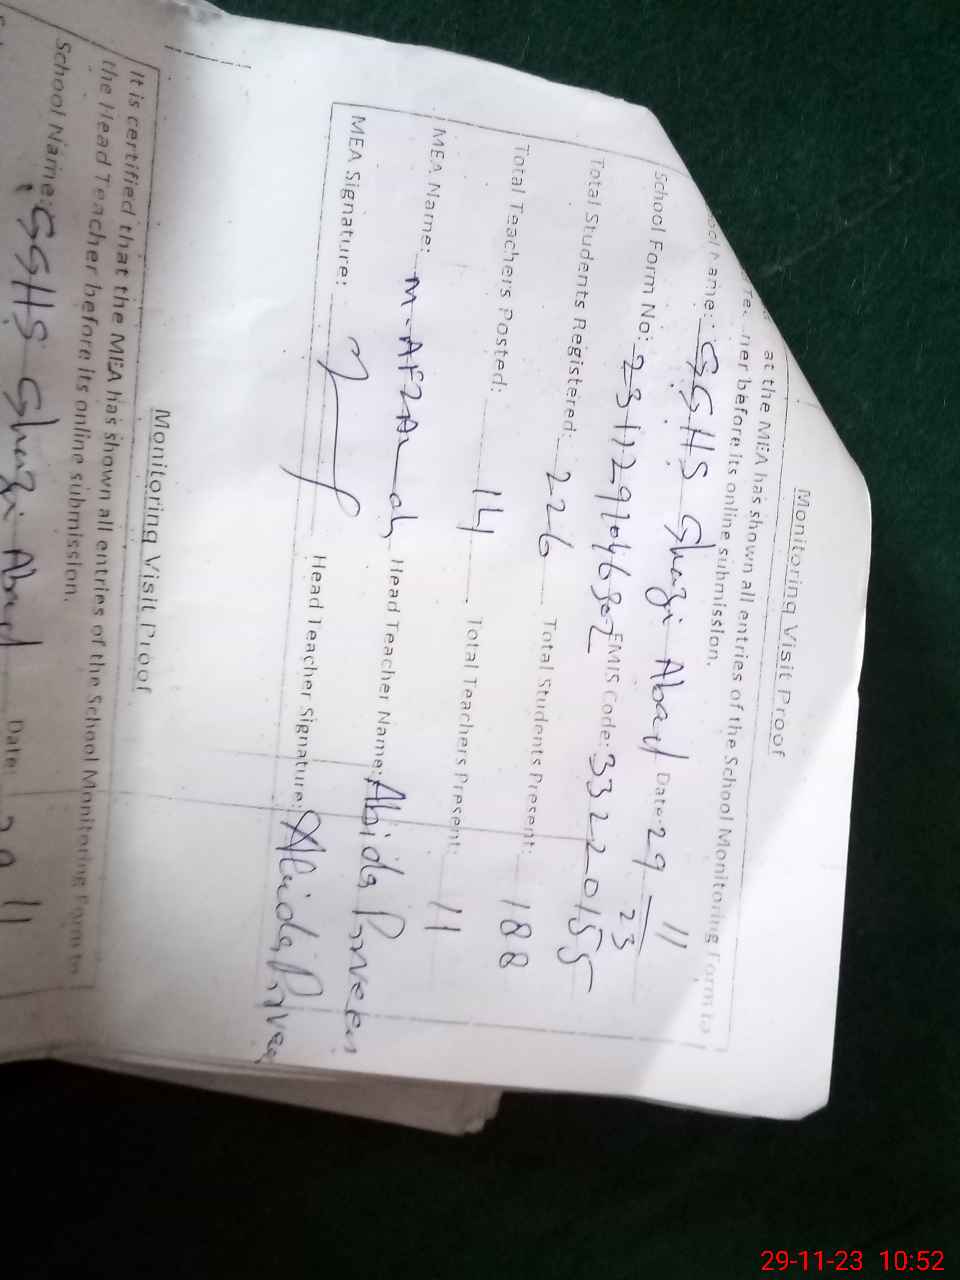 Monitoring Visit Proof
at the MEA has shown all entries of the School Monitoring Form to
ner before its online submission.
Name: GGHS Ghazi Abad Date: 29 11 23
School Form No: EMIS Code: 33220155
Total Students Registered: 226 Total Students Present: 188
Total Teachers Posted: 14 Total Teachers Present: 11
MEA Name: M-AFZAL Head Teacher Name: Abida Parveen
MEA Signature: Head Teacher Signature: Abida Parveen
Monitoring Visit Proof
It is certified that the MEA has shown all entries of the School Monitoring Form to
the Head Teacher before its online submission.
School Name: GGHS Ghazi Abad Date: 29 11
29-11-23 10:52